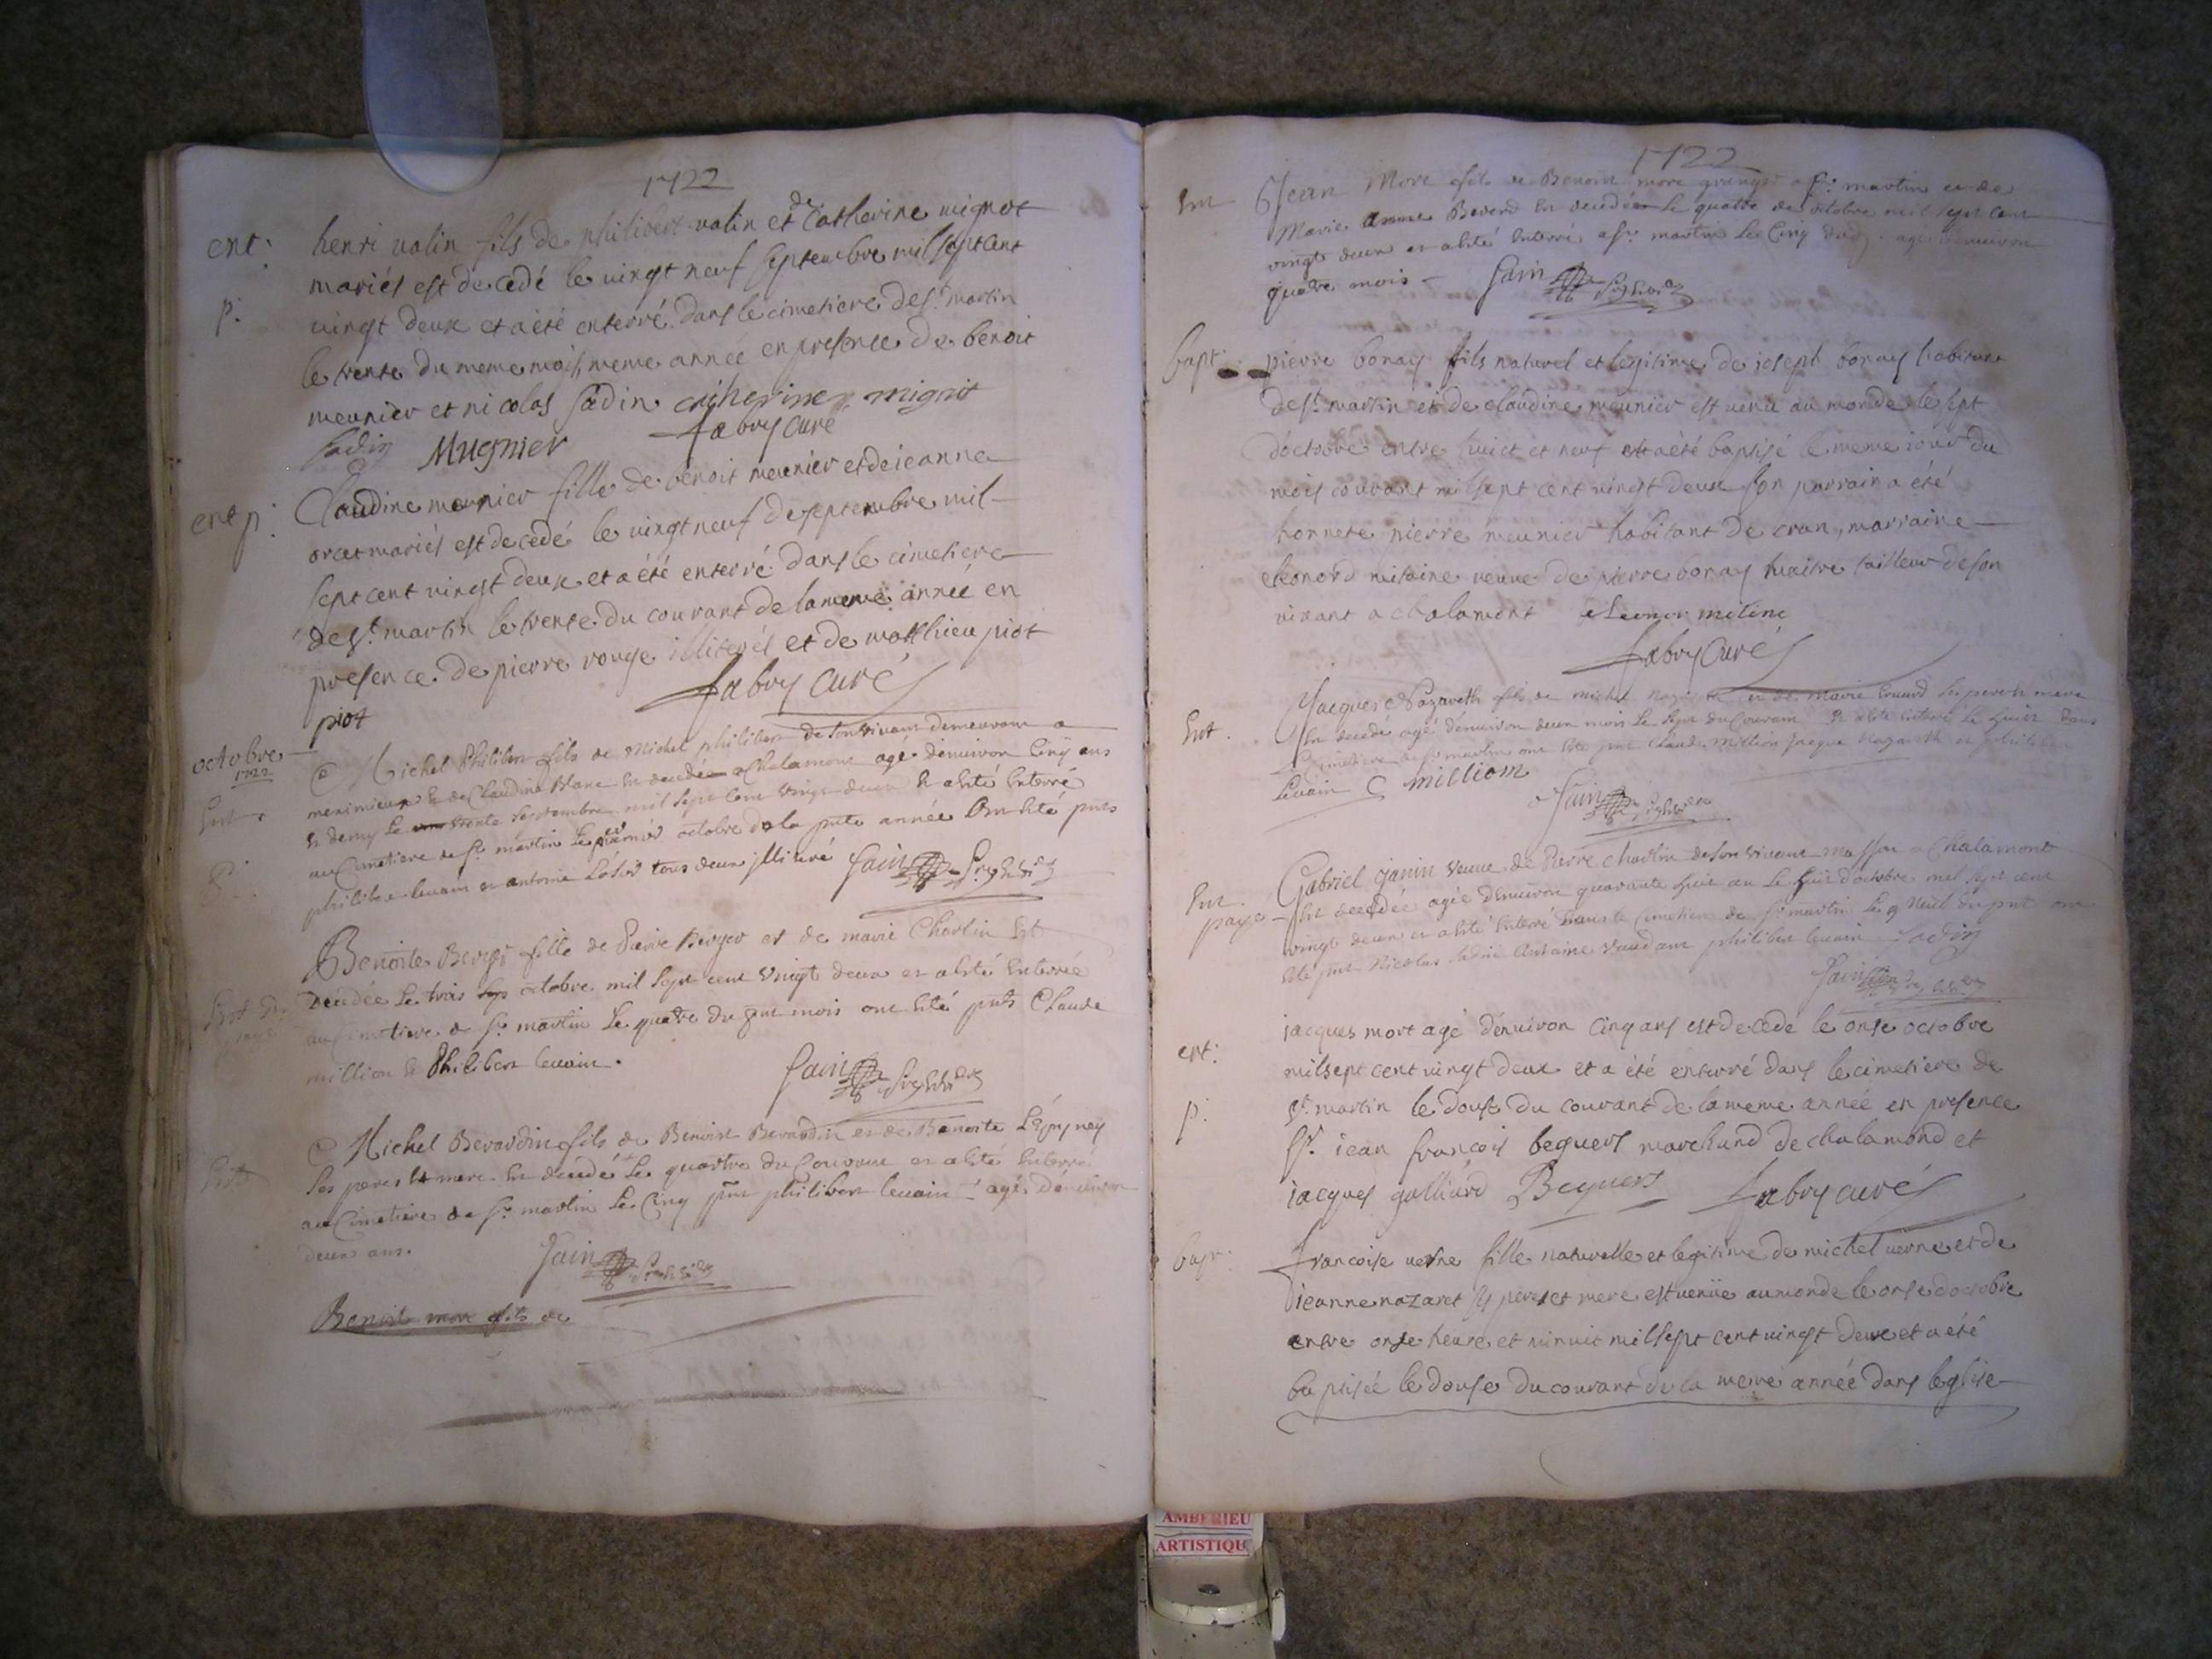 1722
ent: henri valin fils de philibert valin et de Catherine mignot
mariés est decedé le vingt neuf septembre mil sept cent
p: vingt deux et a été enterré dans le cimetiere de st martin
le trente du meme mois meme année en presence de benoit
meunier et nicolas sadin catherine mignot
sadin Mugnier fabry curé
ent p: Claudine meunier fille de benoit meunier et de jeanne
orcet mariés est decedé le vingt neuf de septembre mil
sept cent vingt deux et a été enterré dans le cimetiere
de st martin le trente du courant de la meme année en
presence de pierre rouge illiterés et de matthieu piot
piot fabry curé
octobre
1722
Michel Philibert fils de Michel philibert de son vivant demeurant a
Ent. meximieux & de Claudine Blanc Est decedé a Chalamont agé denuiron Cinq ans
& demy le trente septembre mil sept Cent vingt deux & a Esté Enterré
p. au Cimetiere de st martin le premier octobre de la pnte année Ont Esté pnts
philibert leuain et antoine tous deux illitéré Jain
Benoite Berger fille de Pierre Berger et de marie Charlin Est
decedée le trois octobre mil sept cent vingt deux et a Esté Enterrée
au Cimetiere de st martin le quatre du pnt mois ont Esté pnts Claude
million & Philibert leuain. Jain
Michel Berardin fils de Benoist Berardin et de Benoite
Ses peres & mere Est decedé le quatre du Courant et a Esté Enterré
au Cimetiere de st martin le Cinq pnt philibert leuain agé denuiron
deux ans. Jain
Benoit more fils de
1722
Ent Jean More fils de Benoit more granger a st martin et de
Marie Anne Est decedé le quatre de octobre mil sept cent
vingt deux et a Esté Enterré a st martin le Cinq dud. agé denuiron
quatre mois Jain
bapt: pierre bonay fils naturel et legitime de joseph bonay habitant
de st martin et de claudine meunier est venu au monde le sept
d'octobre entre huict et neuf et a été baptisé le meme jour du
mois courant mil sept cent vingt deux son parrain a été
honnete pierre meunier habitant de cran, marraine
eleonord mitaine veuve de pierre bonay maitre tailleur de son
vivant a chalamont eleonor mitine
fabry curé
Jacques Nazareth fils de michel nazareth et de marie ses pere & mere
Ent. Est decedé agé denuiron deux mois le sept du Courant & a Esté Enterré le huit dans
le Cimetiere de st martin ont Esté pnt Claude Million Jacque Nazareth et philibert
leuain C milliom
Jain
Gabriel janin veuve de Pierre charlin de son vivant masson a Chalamont
Ent. payé Est decedée agée denuiron quarante huit an le huit d'octobre mil sept cent
vingt deux et a Esté Enterré dans le Cimetiere de st martin le 9 du pnt ont
Esté pnt Nicolas sadin Antoine philibert leuain sadin
Jain
jacques mort agé denuiron cinq ans est decedé le onse octobre
ent: mil sept cent vingt deux et a été enterré dans le cimetiere de
p: st martin le douse du courant de la meme année en presence
sr. jean francois beguers marchand de chalamond et
jacques galliard Beguers fabry curé
bapt: francoise verne fille naturelle et legitime de michel verne et de
jeanne nazaret ses pere et mere est venüe au monde le onse d'octobre
entre onse heure et minuit mil sept cent vingt deux et a été
baptisée le douse du courant de la meme année dans leglise
AMBERIEU
ARTISTIQU